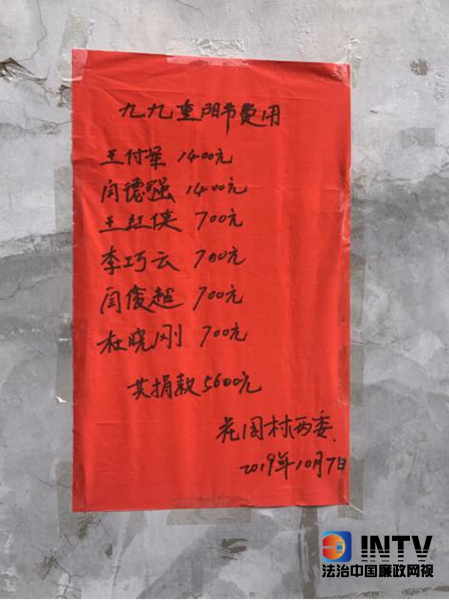 九九重阳节费用
王付军 1400元
闫德强 1400元
王红侠 700元
李巧云 700元
闫俊超 700元
杜晓刚 700元
共捐款5600元
花园村两委.
2019年10月7日
INTV
法治中国廉政网视